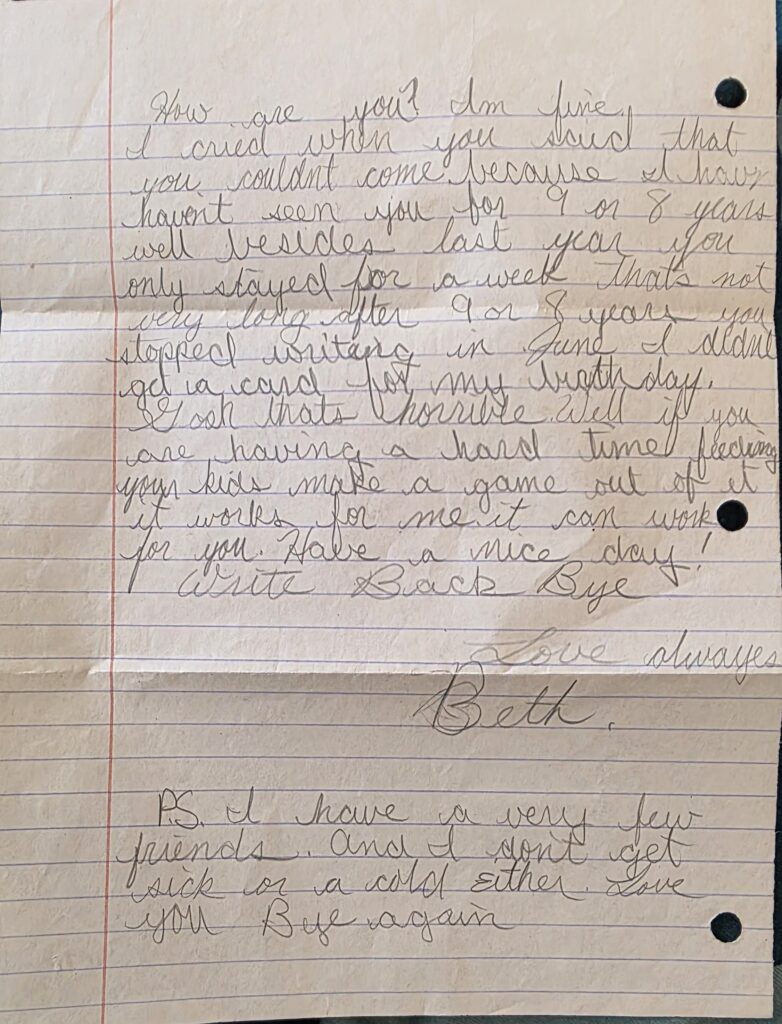 How are you? Im fine.
I cried when you said that
you couldnt come because I have
havent seen you for 9 or 8 years
well besides last year you
only stayed for a week thats not
very long after 9 or 8 years you
stopped writing in June I didnt
get a card for my birthday.
Gosh thats horrible. Well if you
are having a hard time feeding
your kids make a game out of it
it works for me it can work
for you. Have a nice day!
Write Back Bye
Love alwayes
Beth.
P.S. I have a very few
friends. And I don't get
sick or a cold either. Love
you Bye again